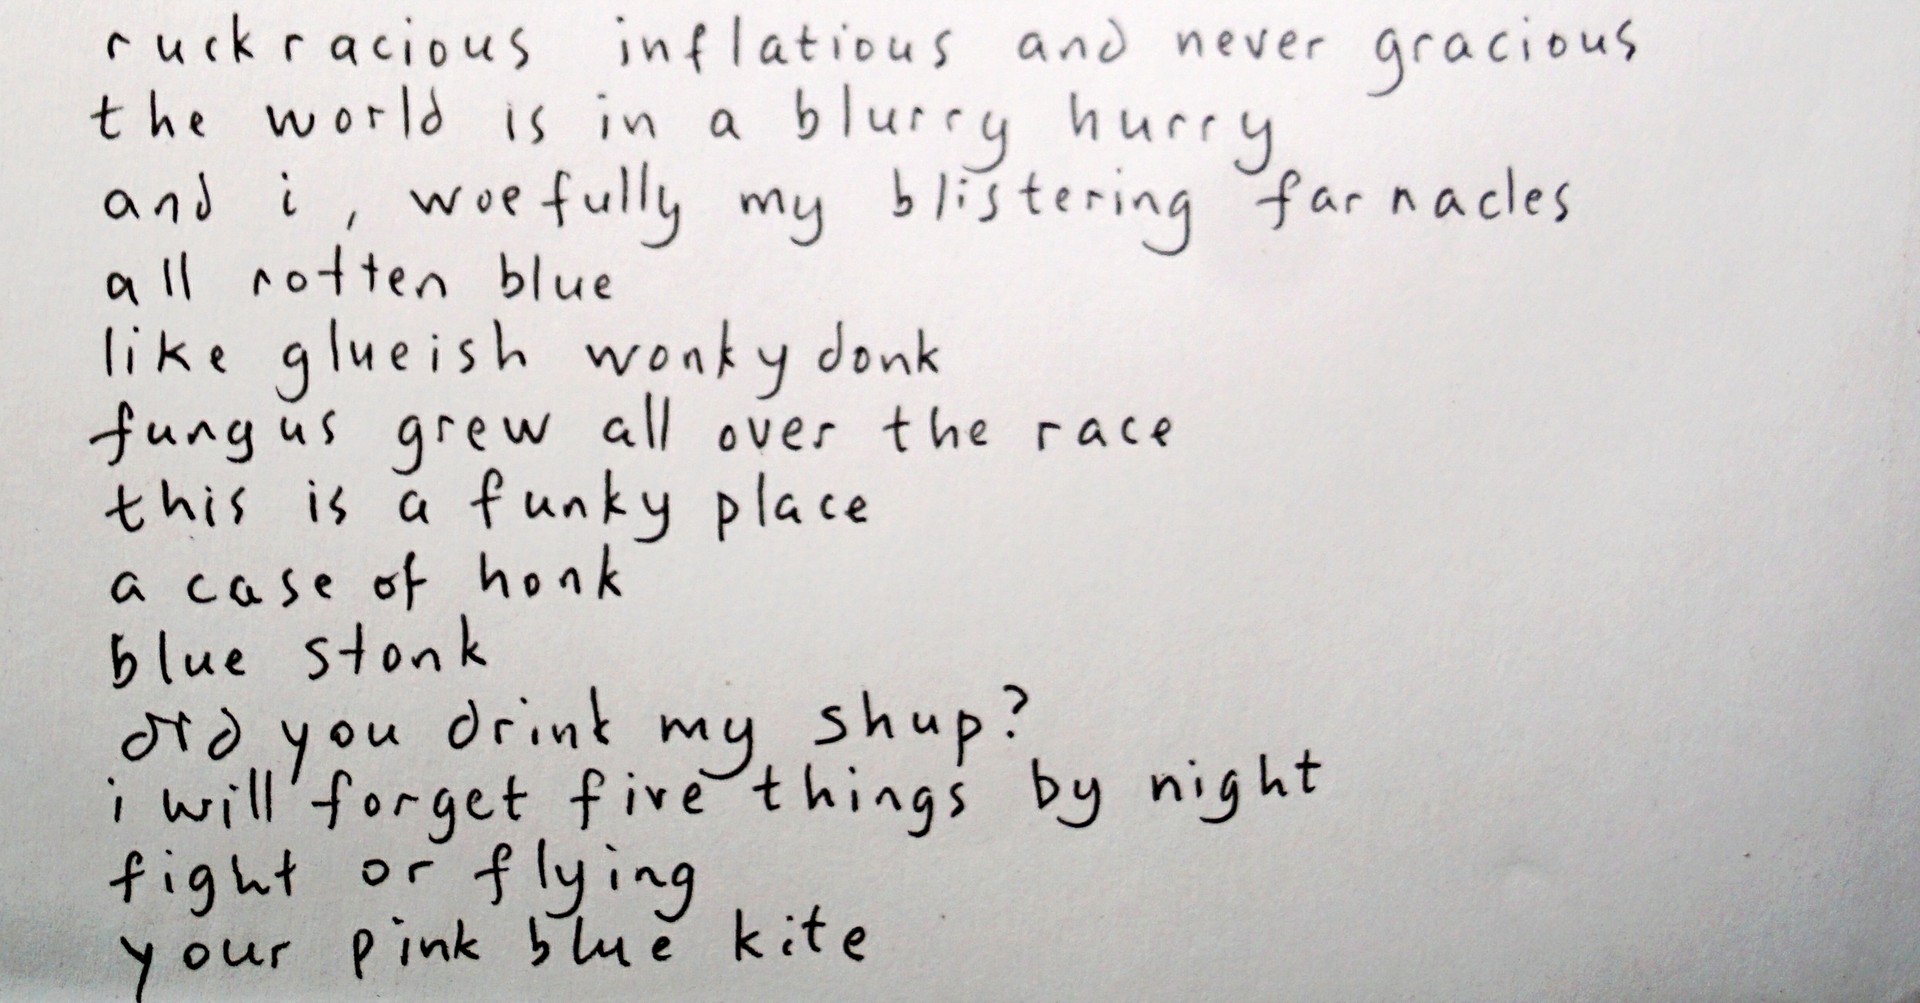 ruckracious inflatious and never gracious
the world is in a blurry hurry
and i, woefully my blistering farnacles
all rotten blue
like glueish wonky donk
fungus grew all over the race
this is a funky place
a case of honk
blue stonk
did you drink my shup?
i will forget five things by night
fight or flying
your pink blue kite